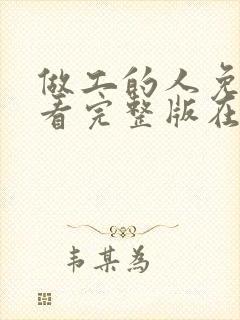 做工的人免
看完整版在
韦某为